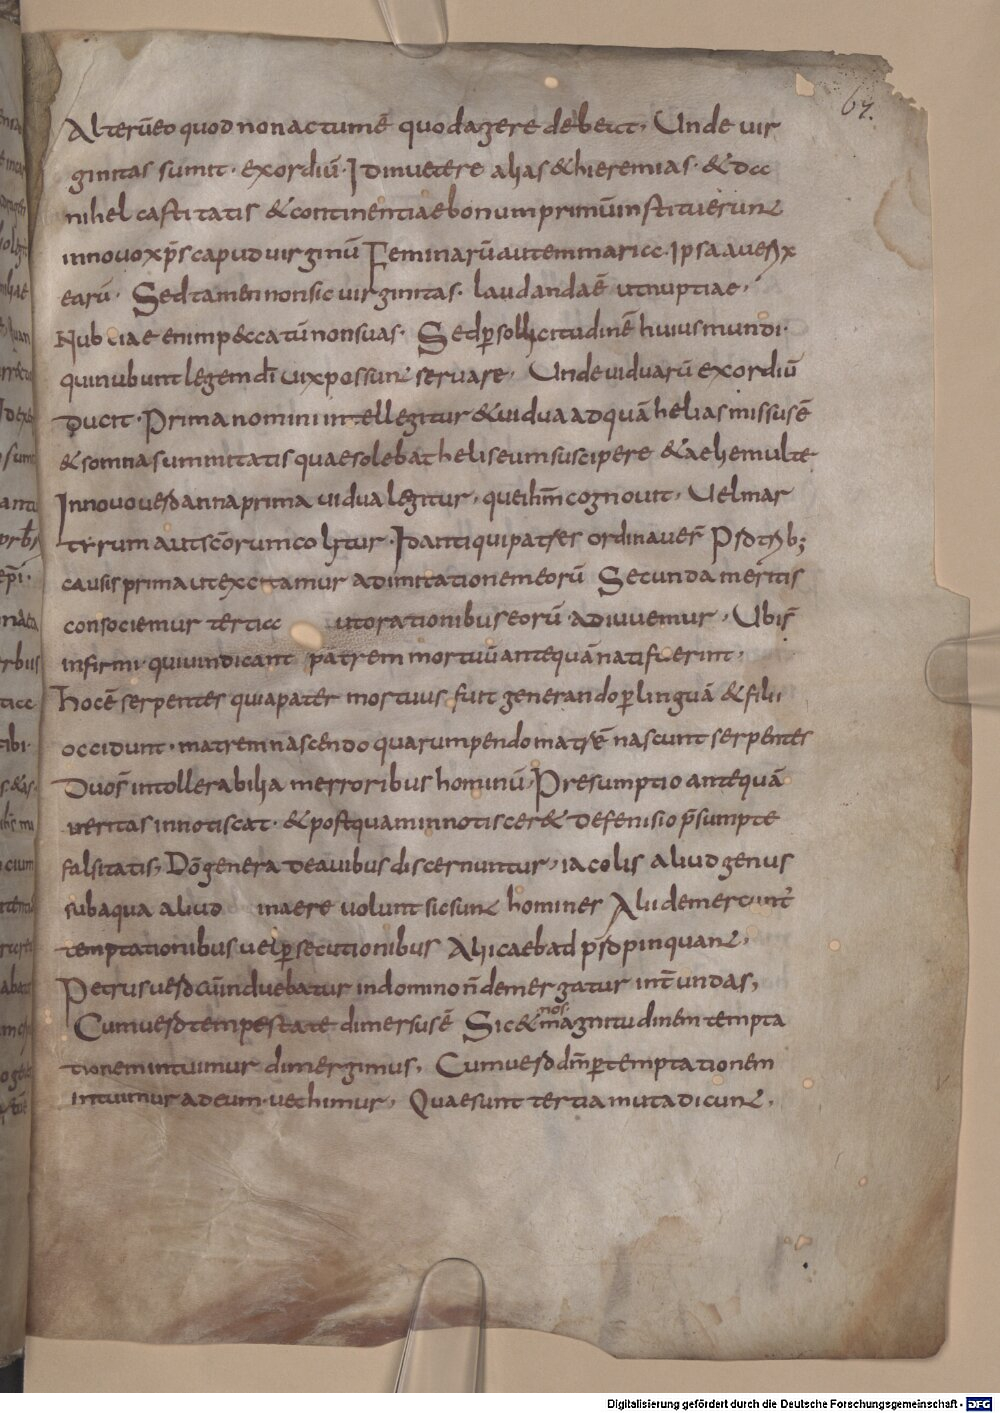 67.
Alterūeo quod non actumē quod agere debeat. Unde uir
ginitas sumit. exordiū. Id inuetere alias & hieremias. &
nihel castitatis & continentiae bonum primū instituerunt
innouo xp̄s capud uirginū Feminarū autem maria. Ipsa
earū. Sed tamen non sic uirginitas. laudandaē ut nuptiae,
Nubciae enim peccatū non suas. Sed p sollicitudinē huius mundi.
qui nubunt legem dī uix possunt seruare, Unde uiduarū exordiū
ducit. Prima nomini intellegitur & uidua ad quā helias missusē
& somna summitatis quae solebat heliseum suscipere &
Innouo anna prima uidua legitur, que ihm̄ cognouit, Uel mar
tyrum aut sc̄orum colitur. Id antiqui patres ordinauer̄
causis prima ut excitamur ad imitationem eorū Secunda meritis
consociemur tertia utorationibus eorū adiuuemur, Ubi s̄
infirmi quiuindicant patrem mortuū antequā nati fuerint,
hocē serpentes quia pater mortuus fuit generando p linguā & filii
occidunt. matrem nascendo quarumpendo matrē nascunt serpentes
Duos̄ intollerabilia merroribus hominū, Presumptio antequā
ueritas innotiscat. & postquam innotiscer& defenisio p̄sumpte
falsitatis, Dō genera deauibus discernuntur, iacolis aliud genus
subaqua aliud inaere uolunt sic sunt homines Alii demer
temptationibus uel psecutionibus Alii
Petrus induebatur indomino n̄ demergatur int̄ undas,
Cum tempestate dimersusē Sic & nos magnitudinem tempta
tionem intuimur dimergimus, Cum dm̄ p temptationem
intuimur adeum uechimur, Quae sunt tertia muta dicunt,
Digitalisierung gefördert durch die Deutsche Forschungsgemeinschaft - DFG